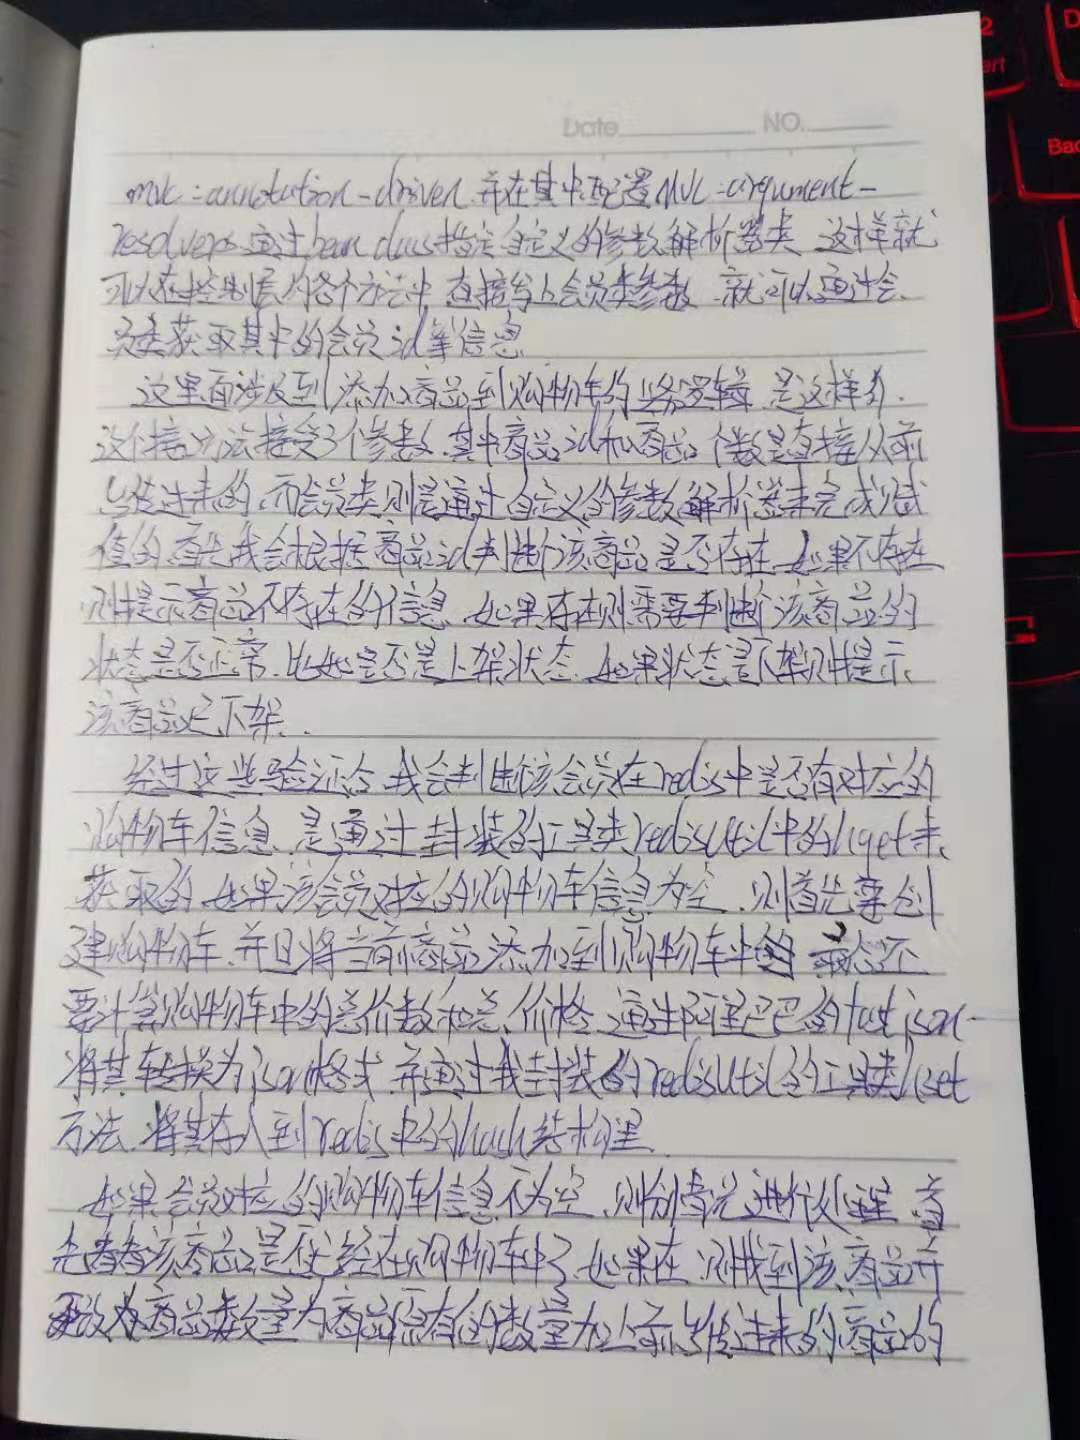 Date NO.
mvc:annotation-driven 并在其中配置mvc:argument-
resolvers 通过bean class指定自定义的参数解析器类 这样就
可以在控制层的各个方法中 直接写上会员类参数 就可以通过会
员类获取其中的会员id等信息
这里面涉及到添加商品到购物车的业务逻辑 是这样的.
这个接口方法接受3个参数.其中商品id和商品个数是直接从前
台传过来的.而会员类则是通过自定义的参数解析器来完成赋
值的.首先我会根据商品id判断该商品是否存在.如果不存在
则提示商品不存在的信息.如果存在则需要判断该商品的
状态是否正常.比如是否是上架状态.如果状态是下架则提示
该商品已下架.
经过这些验证后 我会判断该会员在redis中是否有对应的
购物车信息.是通过封装的工具类redisUtil中的hget来
获取的.如果该会员对应的购物车信息为空.则首先要创
建购物车.并且将当前商品添加到购物车中 最后还
要计算购物车中的总个数和总价格.通过阿里巴巴的fastjson
将其转换为json格式 并通过我封装的redisUtil的工具类hset
方法.将其存入到redis中的hash结构里
如果会员对应的购物车信息不为空.则分情况进行处理 首
先看看该商品是否已经在购物车中了.如果在 则找到该商品并
更改商品数量为商品原有的数量加上前台传过来的商品的